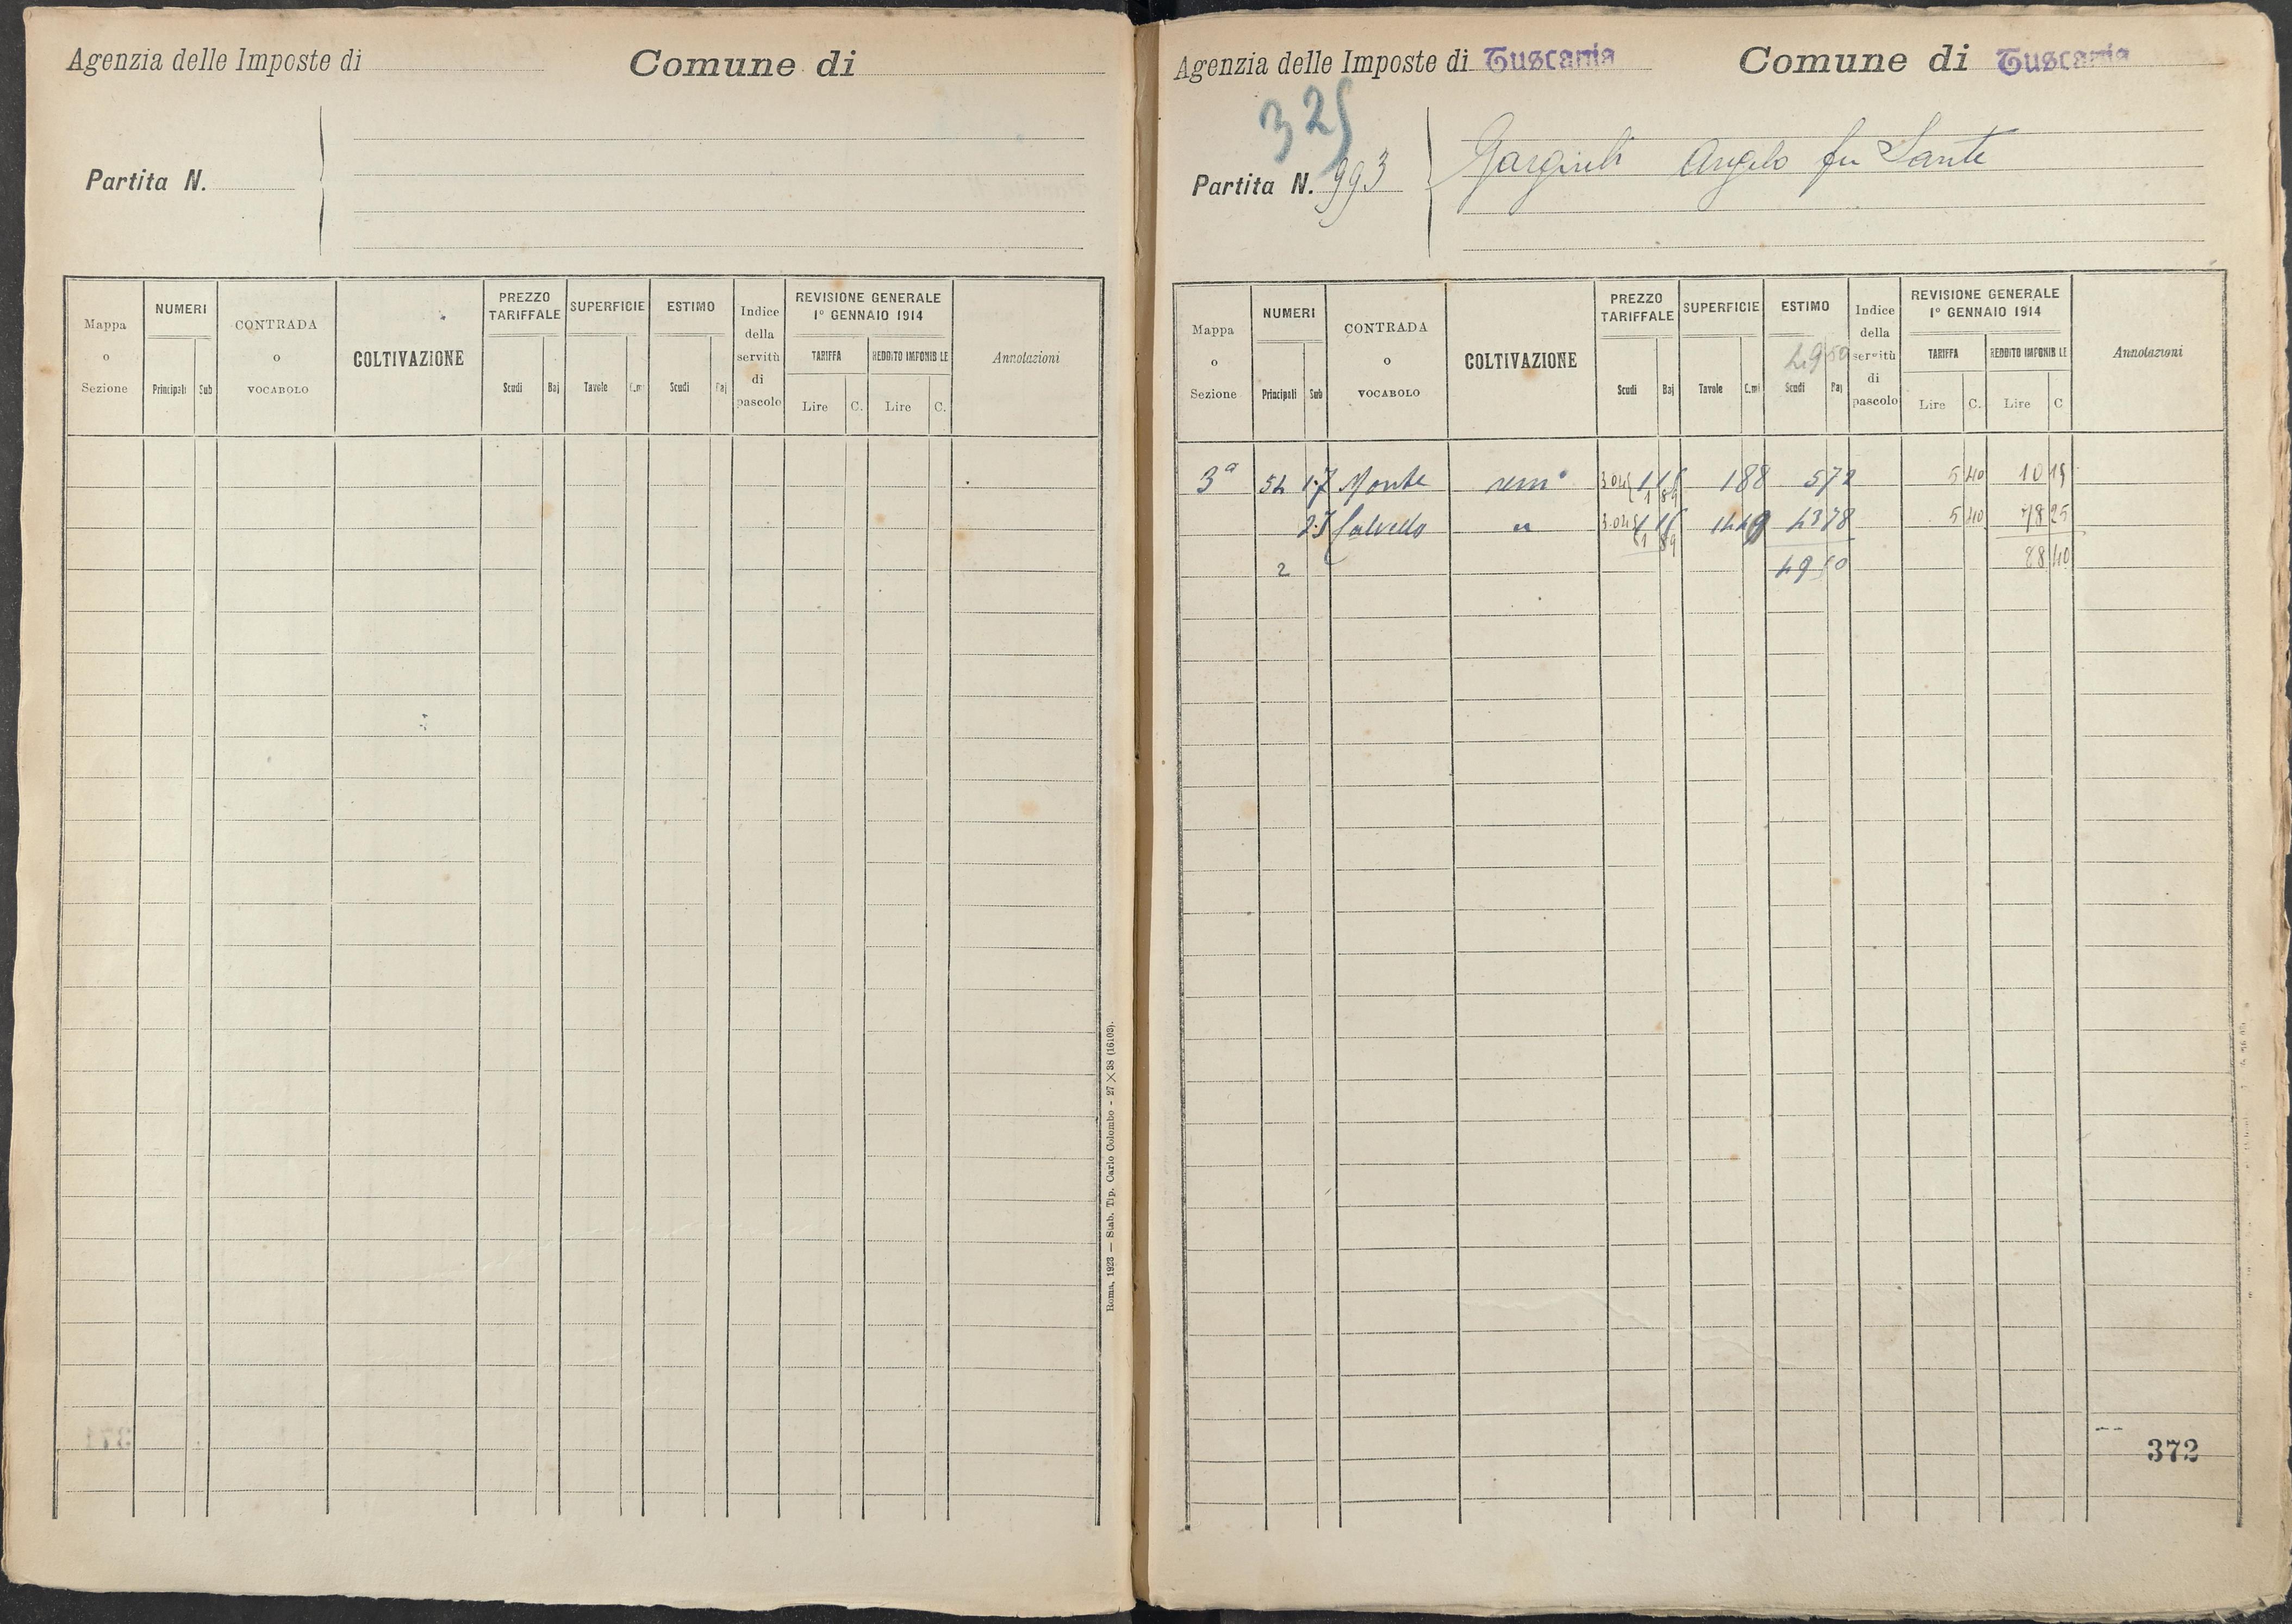 Agenzia delle Imposte di
Comune di
Partita N.
Mappa o Sezione
NUMERI
Principali Sub
CONTRADA o VOCABOLO
COLTIVAZIONE
PREZZO TARIFFALE
Scudi Baj
SUPERFICIE
Tavole C.mi
ESTIMO
Scudi Baj
Indice della servitù di pascolo
REVISIONE GENERALE
1º GENNAIO 1914
TARIFFA
Lire C.
REDDITO IMPONIB LE
Lire C.
Annotazioni
Roma, 1923 — Stab. Tip. Carlo Colombo - 27 × 38 (16103).
371
Agenzia delle Imposte di Tuscania
Comune di Tuscania
325
Partita N. 993
Angelo fu Sante
Mappa o Sezione
NUMERI
Principali Sub
CONTRADA o VOCABOLO
COLTIVAZIONE
PREZZO TARIFFALE
Scudi Baj
SUPERFICIE
Tavole C.mi
ESTIMO
49 50
Scudi Baj
Indice della servitù di pascolo
REVISIONE GENERALE
1º GENNAIO 1914
TARIFFA
Lire C.
REDDITO IMPONIB LE
Lire C
Annotazioni
3ª 54 17 Monte semº 188 572 5 40 10 15
1 89
Calvello " 1449 4378 5 40 78 25
1 89
2 49 50 88 40
372